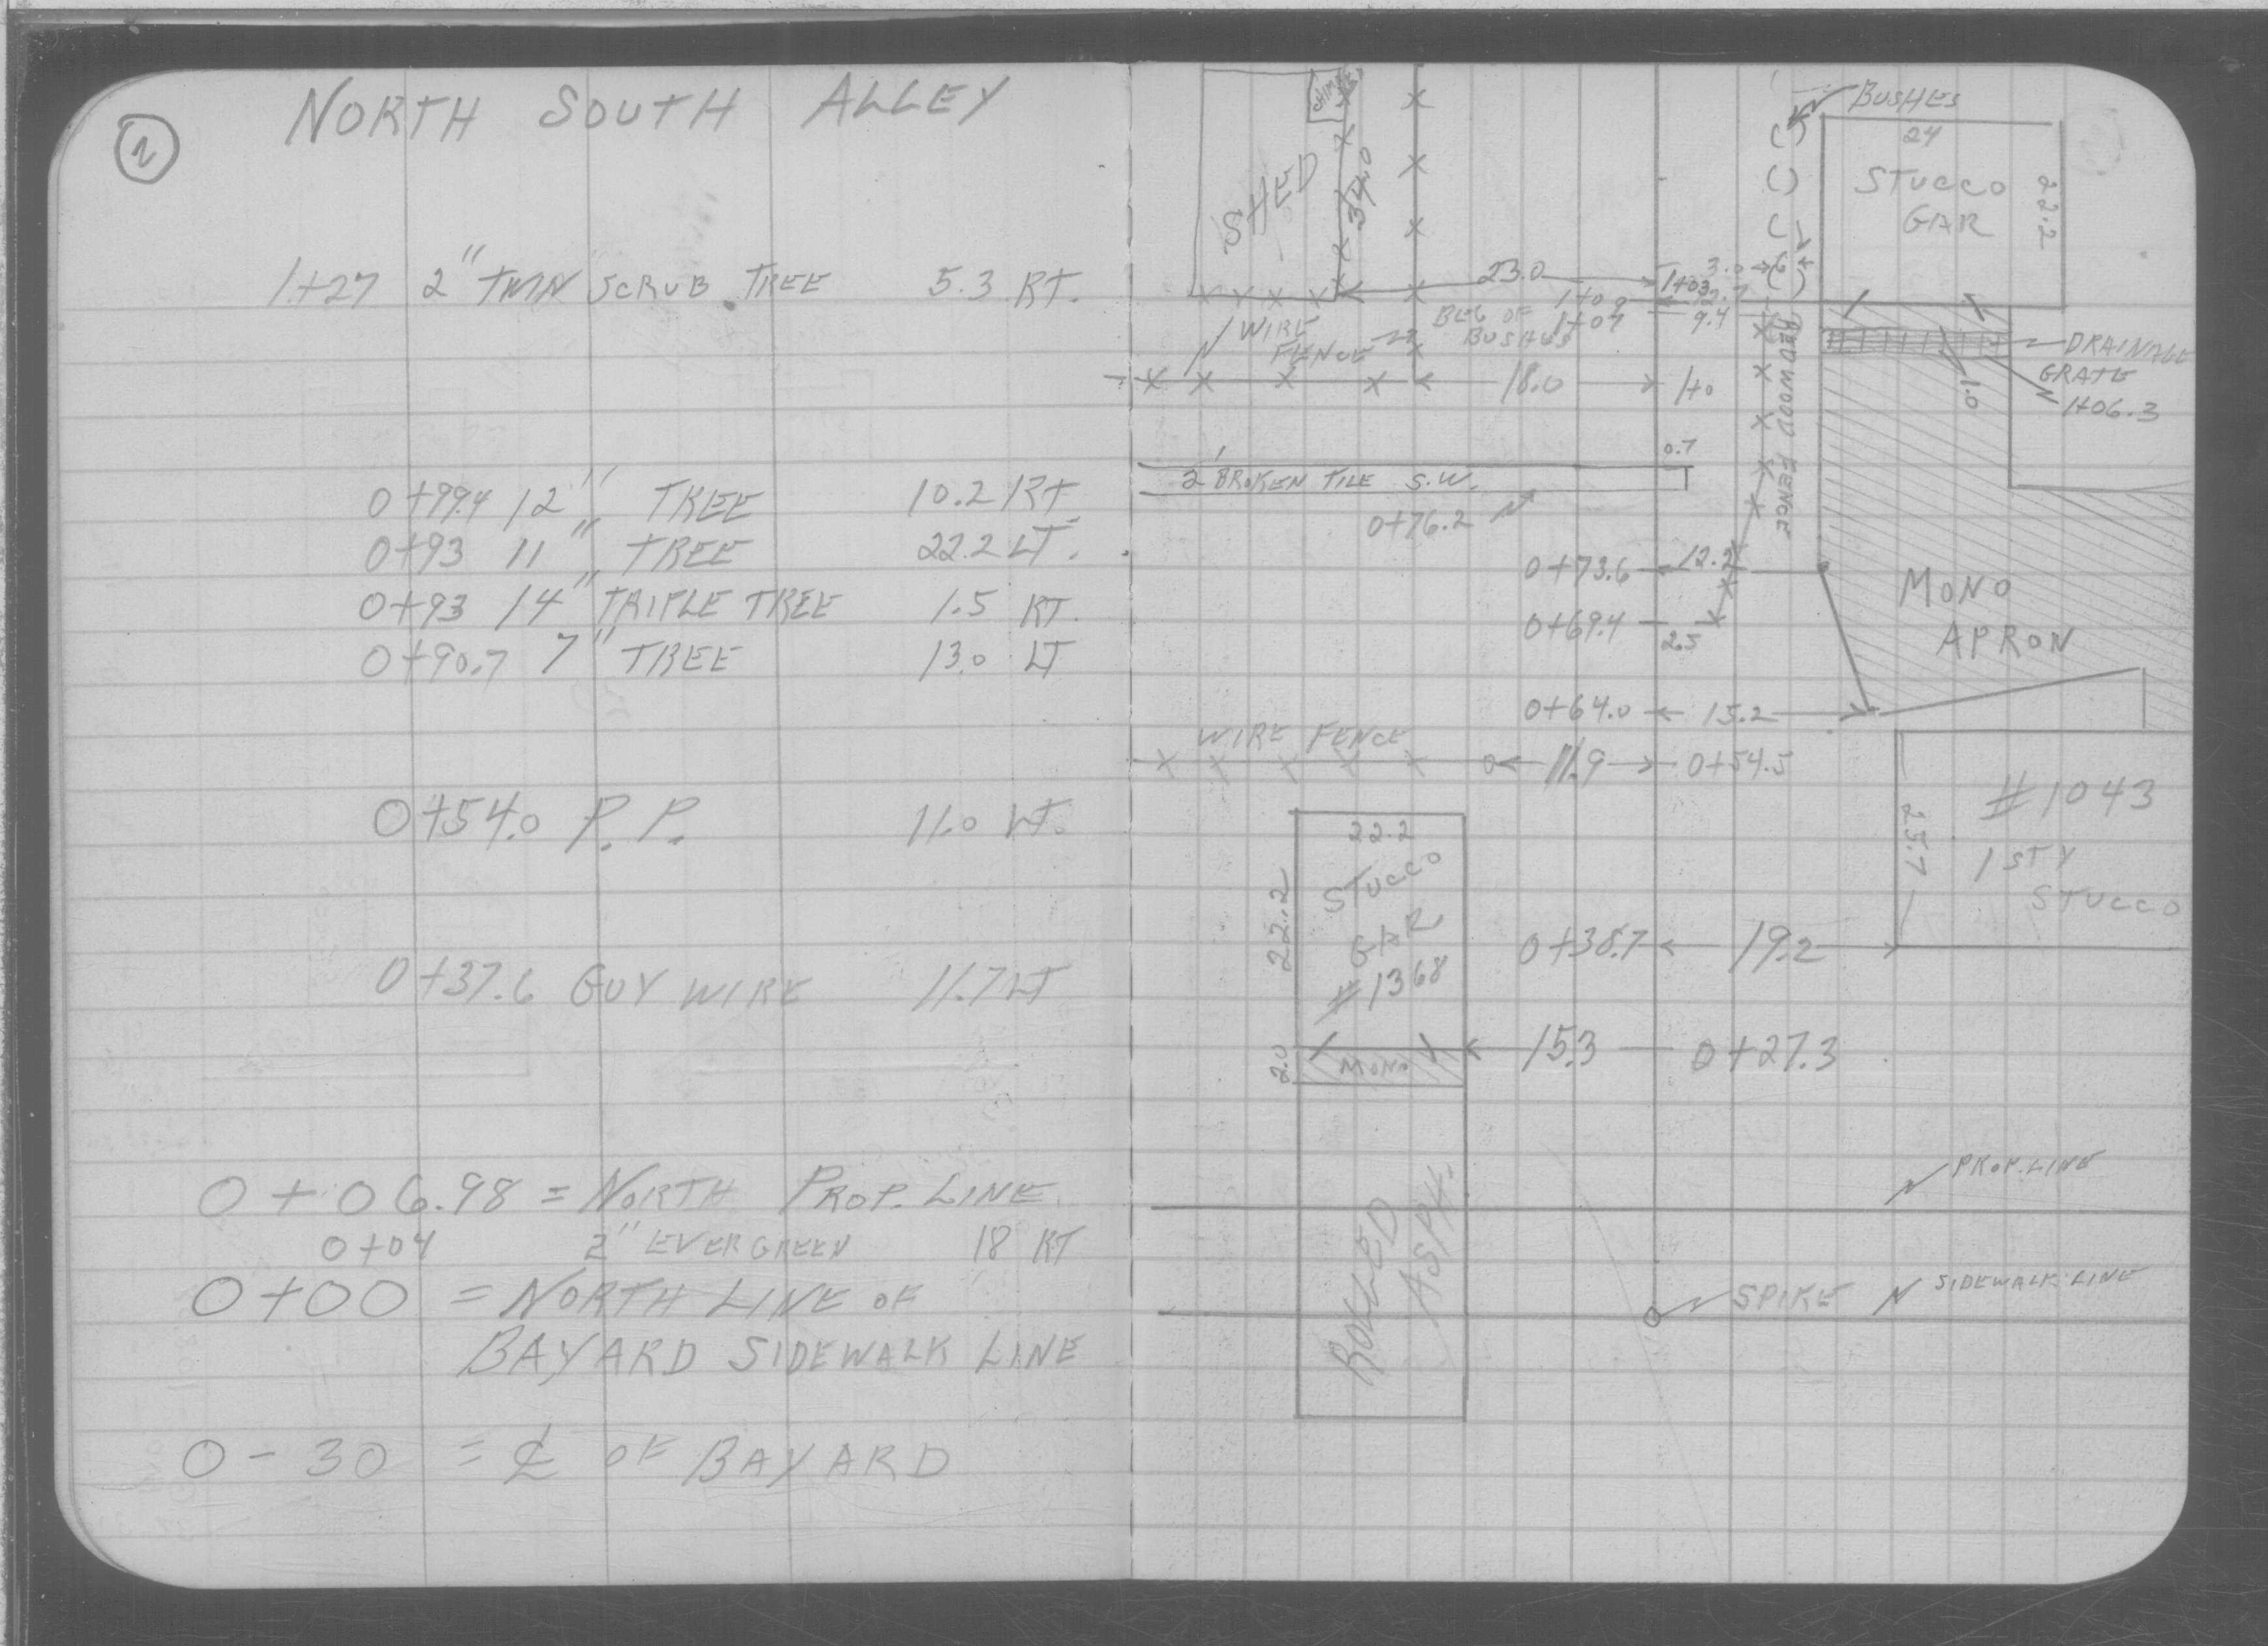 2
NORTH SOUTH ALLEY
1+27 2" TWIN SCRUB TREE 5.3 RT.
0+99.4 12" TREE 10.2 RT
0+93 11" TREE 22.2 LT.
0+93 14" TRIPLE TREE 1.5 RT.
0+90.7 7" TREE 13.0 LT
0+54.0 P.P. 11.0 LT.
0+37.6 GUY WIRE 11.7 LT
0+06.98 = NORTH PROP. LINE
0+04 2" EVERGREEN 18 RT
0+00 = NORTH LINE OF
BAYARD SIDEWALK LINE
0-30 = ℄ OF BAYARD
BUSHES
SHED
34.0
24
STUCCO
GAR
22.2
23.0
3.0
1+03
1+09
BEG OF
BUSHES
1+07
9.4
WIRE
FENCE
18.0
1+0
REDWOOD FENCE
DRAINAGE
GRATE
1+06.3
1.0
0.7
2' BROKEN TILE S.W.
0+76.2
0+73.6 12.2
0+69.4 2.5
MONO
APRON
0+64.0 15.2
WIRE FENCE
11.9 0+54.5
#1043
1 STY
STUCCO
25.7
22.2
STUCCO
GAR
#1368
22.2
0+38.7 19.2
15.3 0+27.3
2.0
MONO
PROP. LINE
ROLLED
ASPH.
SPIKE
SIDEWALK LINE